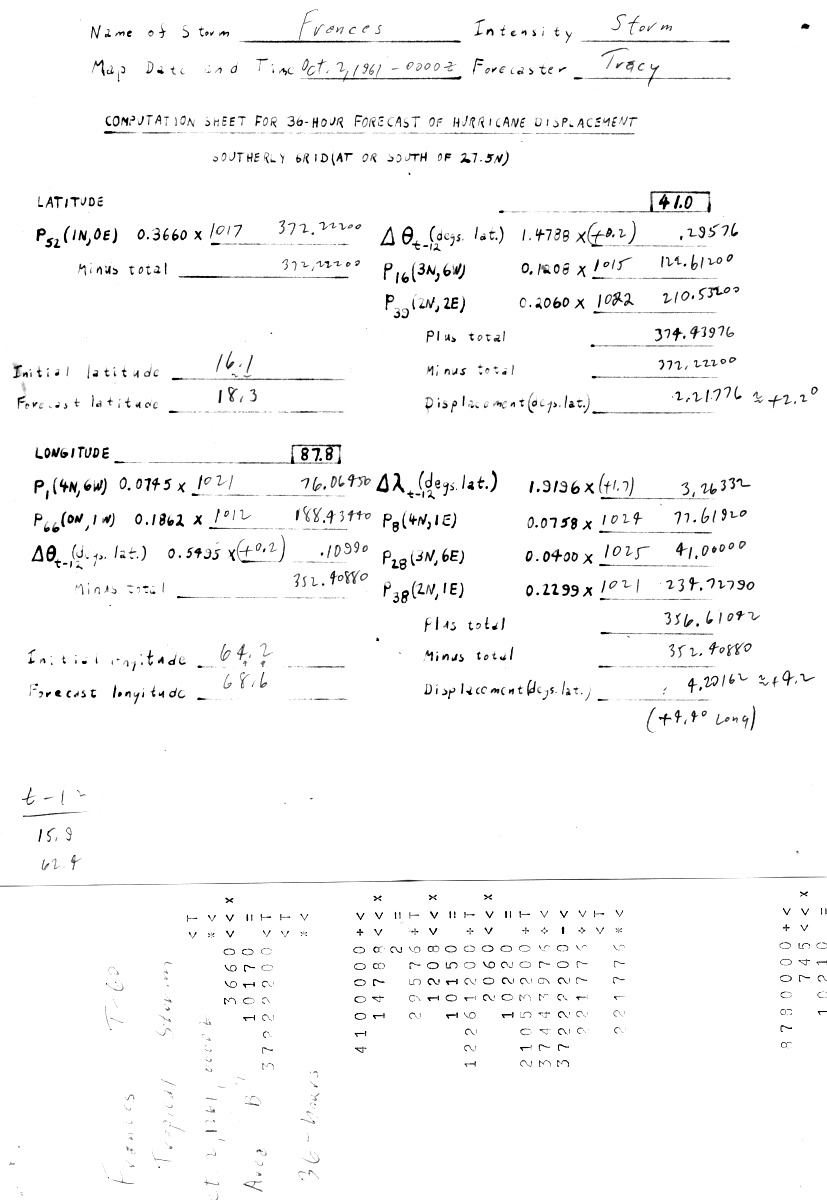 Name of Storm Frances Intensity Storm
Map Date and Time Oct. 2, 1961 - 0000Z Forecaster Tracy
COMPUTATION SHEET FOR 36-HOUR FORECAST OF HURRICANE DISPLACEMENT
SOUTHERLY GRID (AT OR SOUTH OF 27.5N)
LATITUDE 41.0
P52 (1N, 0E) 0.3660 x 1017 372.22200 Δθt-12 (degs. lat.) 1.4788 x (+0.2) .29576
Minus total 372.22200 P16 (3N, 6W) 0.1208 x 1015 122.61200
P39 (2N, 2E) 0.2060 x 1022 210.53200
Plus total 374.43976
Initial latitude 16.1 Minus total 372.22200
Forecast latitude 18.3 Displacement (degs. lat.) 2.21776 ≈ +2.2°
LONGITUDE 87.8
P1 (4N, 6W) 0.0745 x 1021 76.06450 Δλt-12 (degs. lat.) 1.9196 x (+1.7) 3.26332
P66 (0N, 1W) 0.1862 x 1012 188.43440 P8 (4N, 1E) 0.0758 x 1024 77.61920
Δθt-12 (degs. lat.) 0.5495 x (+0.2) .10990 P28 (3N, 6E) 0.0400 x 1025 41.00000
Minus total 352.40880 P38 (2N, 1E) 0.2299 x 1021 234.72790
Plus total 356.61042
Initial longitude 64.2 Minus total 352.40880
Forecast longitude 68.6 Displacement (degs. lat.) 4.20162 ≈ +4.2
(+4.4° Long)
t-12
15.9
62.4
Frances T-60
Tropical Storm
2, 1961, 0000Z
Area B
36-hours
<T
*<
3660<<x
10170=
37222200<T
<T
*<
4100000+<
14788<<x
2=
29576+T
1208<<x
10150=
12261200+T
2060<<x
10220=
21053200+T
37443976+<
37222200-<
221776+<
<T
221776*<
8780000+<
745<<x
10210=